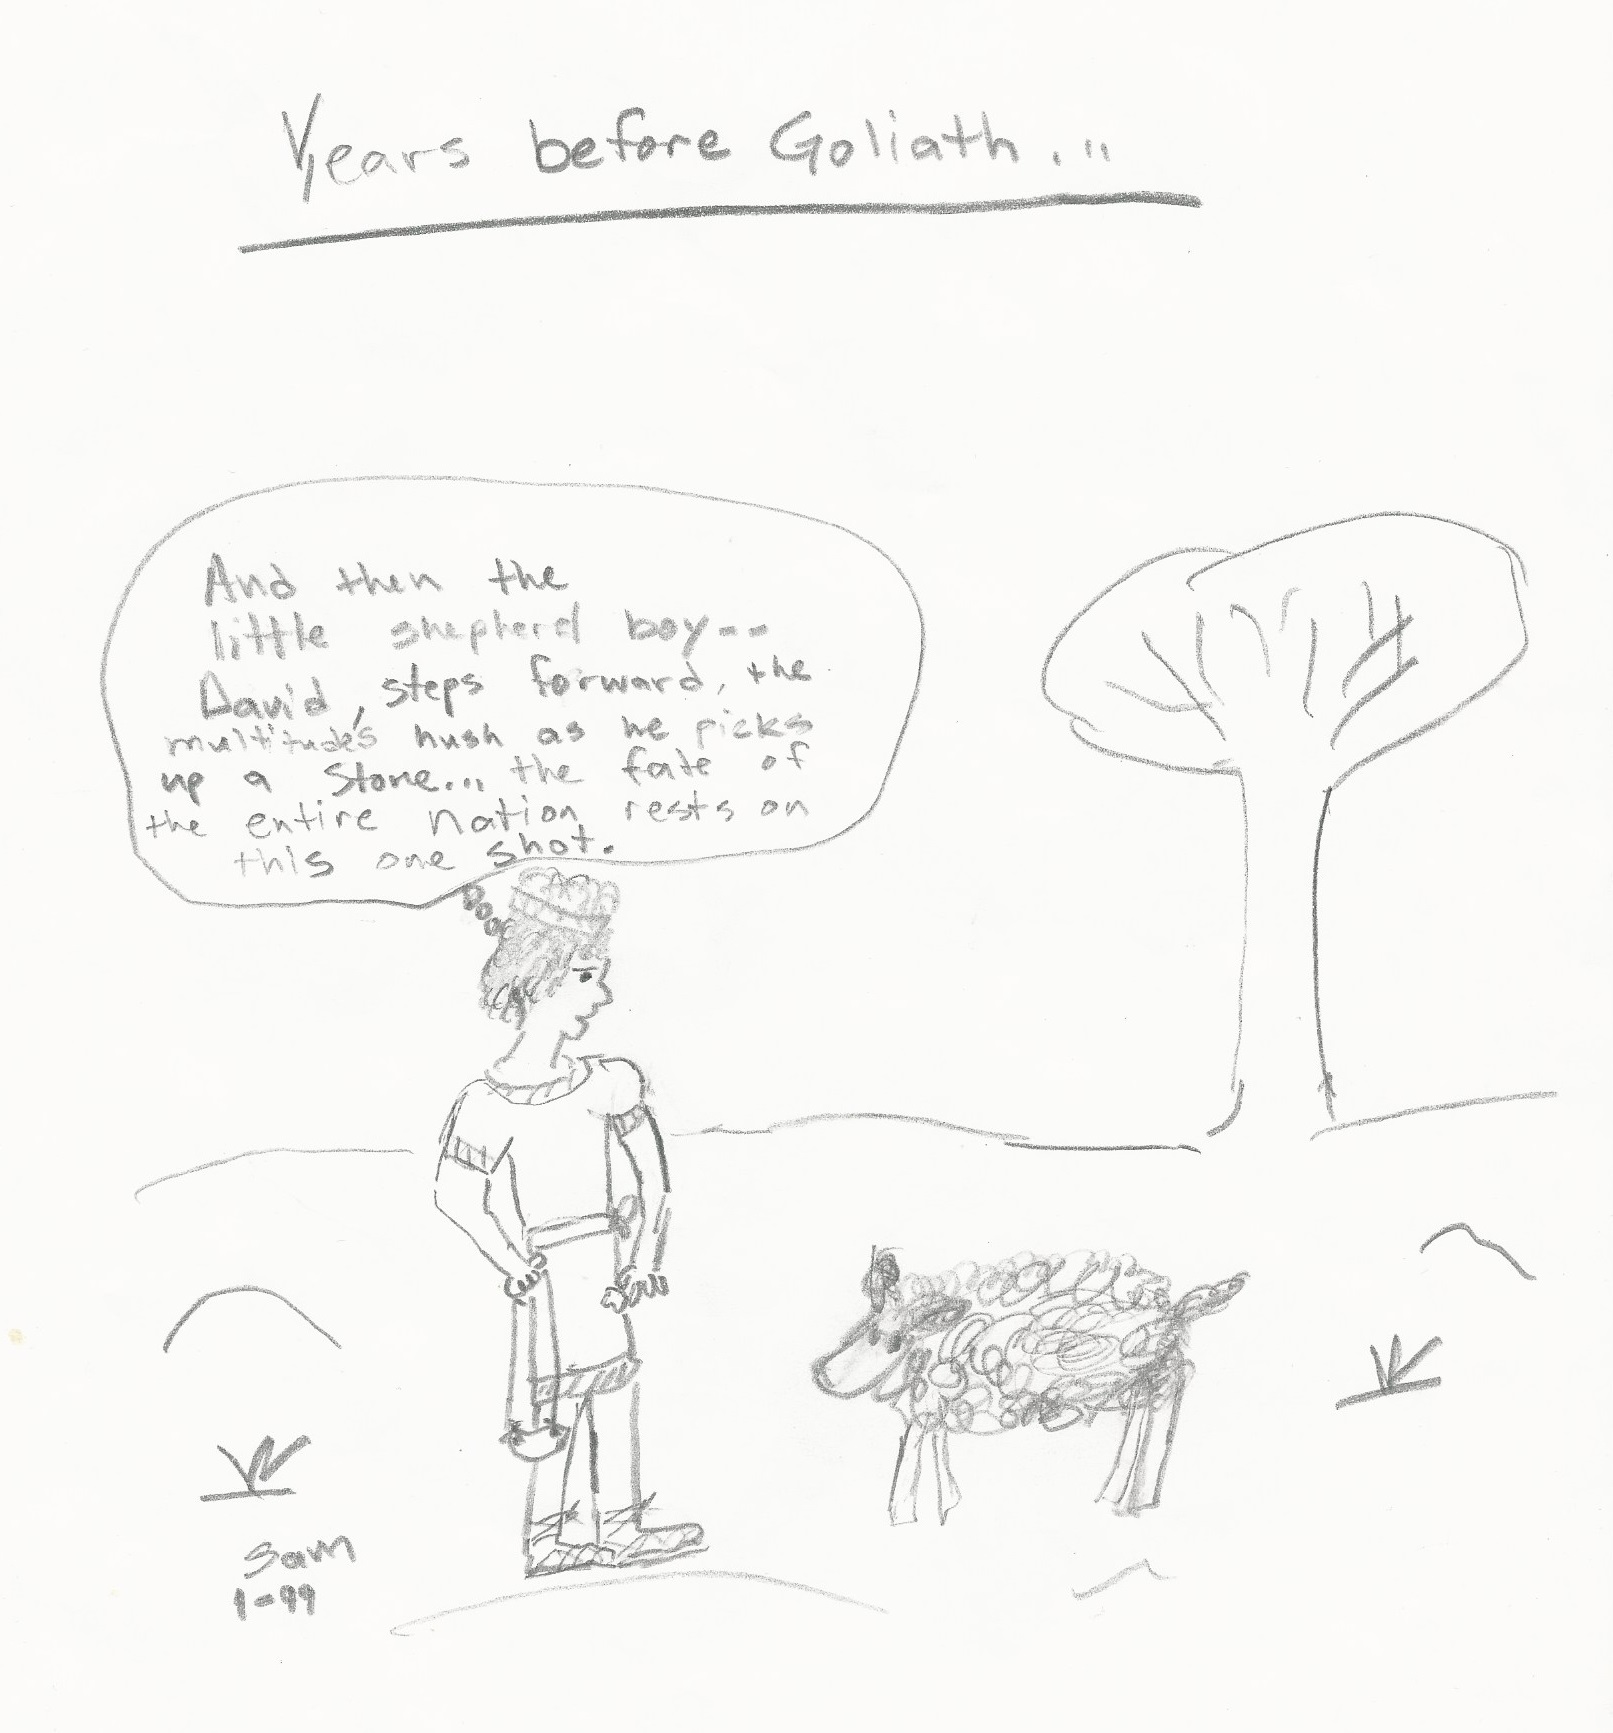 Years before Goliath...
And then the
little shepherd boy--
David, steps forward, the
multitudes hush as he picks
up a stone... the fate of
the entire nation rests on
this one shot.
Sam
1-99